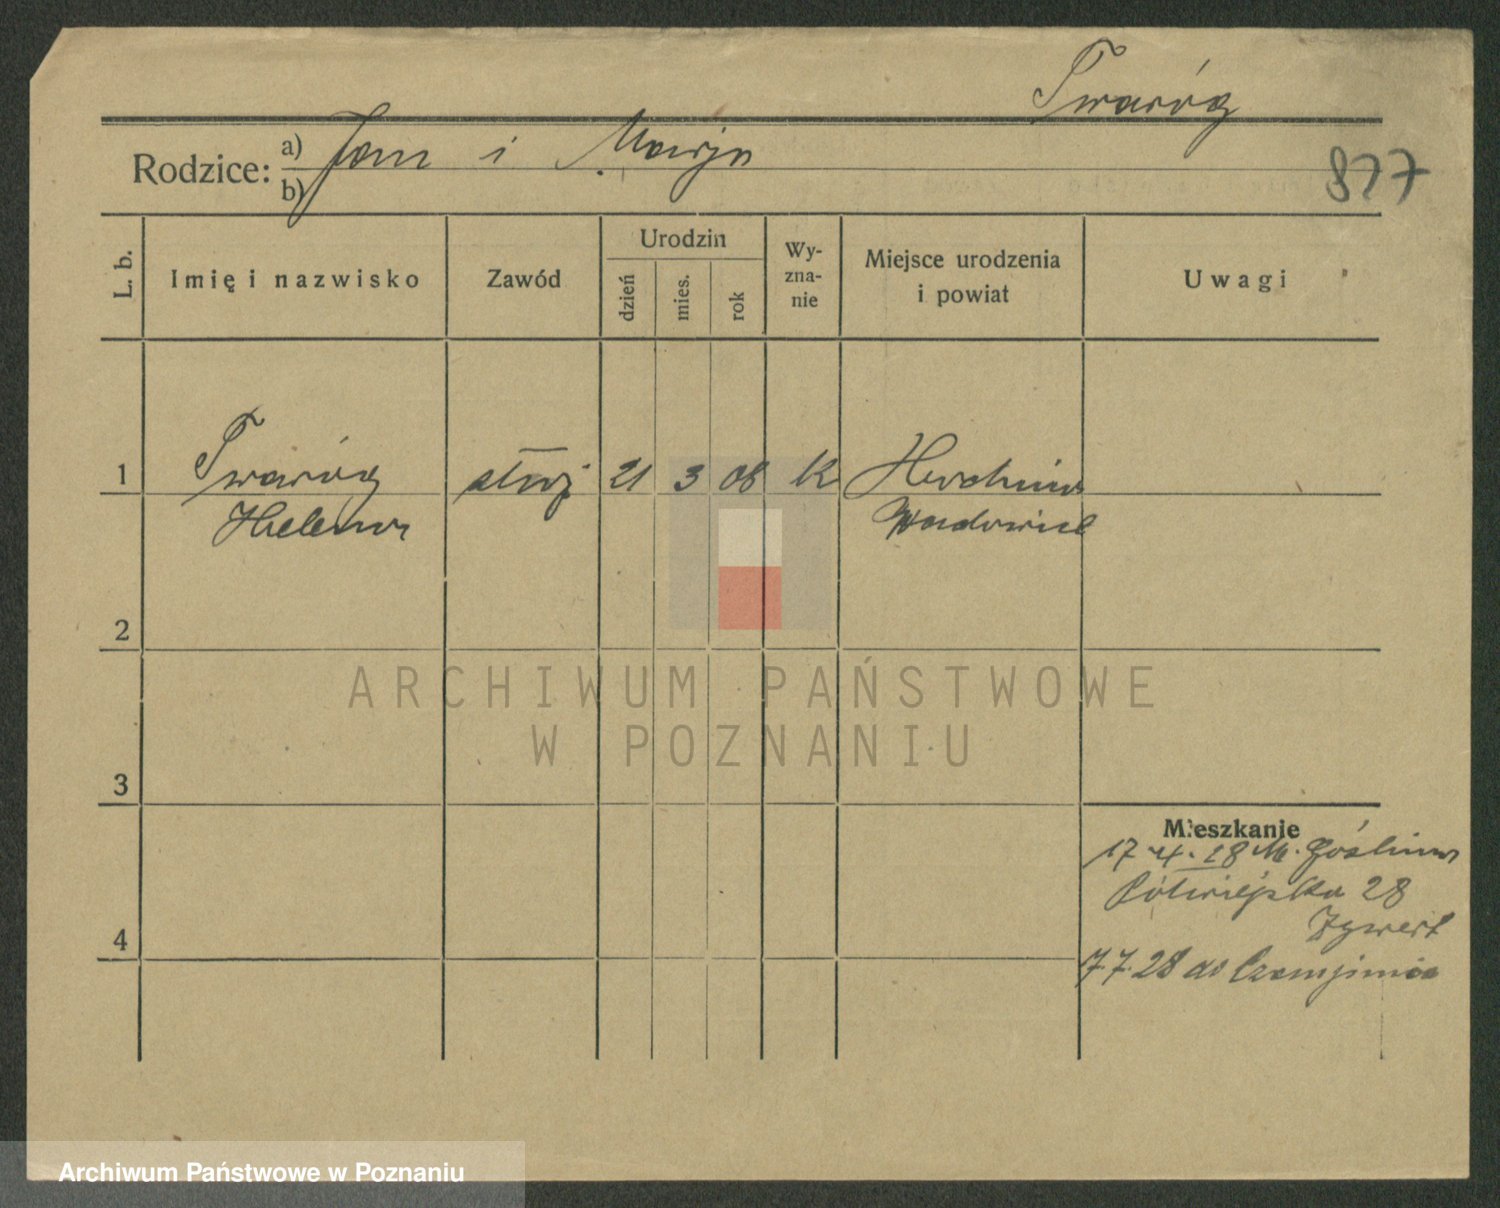 Twaróg
Rodzice: a) Jan i Marja
b)
877
L. b.
Imię i nazwisko
Zawód
Urodzin
dzień
mies.
rok
Wy-
zna-
nie
Miejsce urodzenia
i powiat
Uwagi
1 Twaróg służ 21 3 08 k
Helena Wadowice
2
3
4
Mieszkanie
17.4.28 M. Goślina
Półwiejska 28
Zywert
7.7.28 do Czempinia
ARCHIWUM PAŃSTWOWE
W POZNANIU
Archiwum Państwowe w Poznaniu